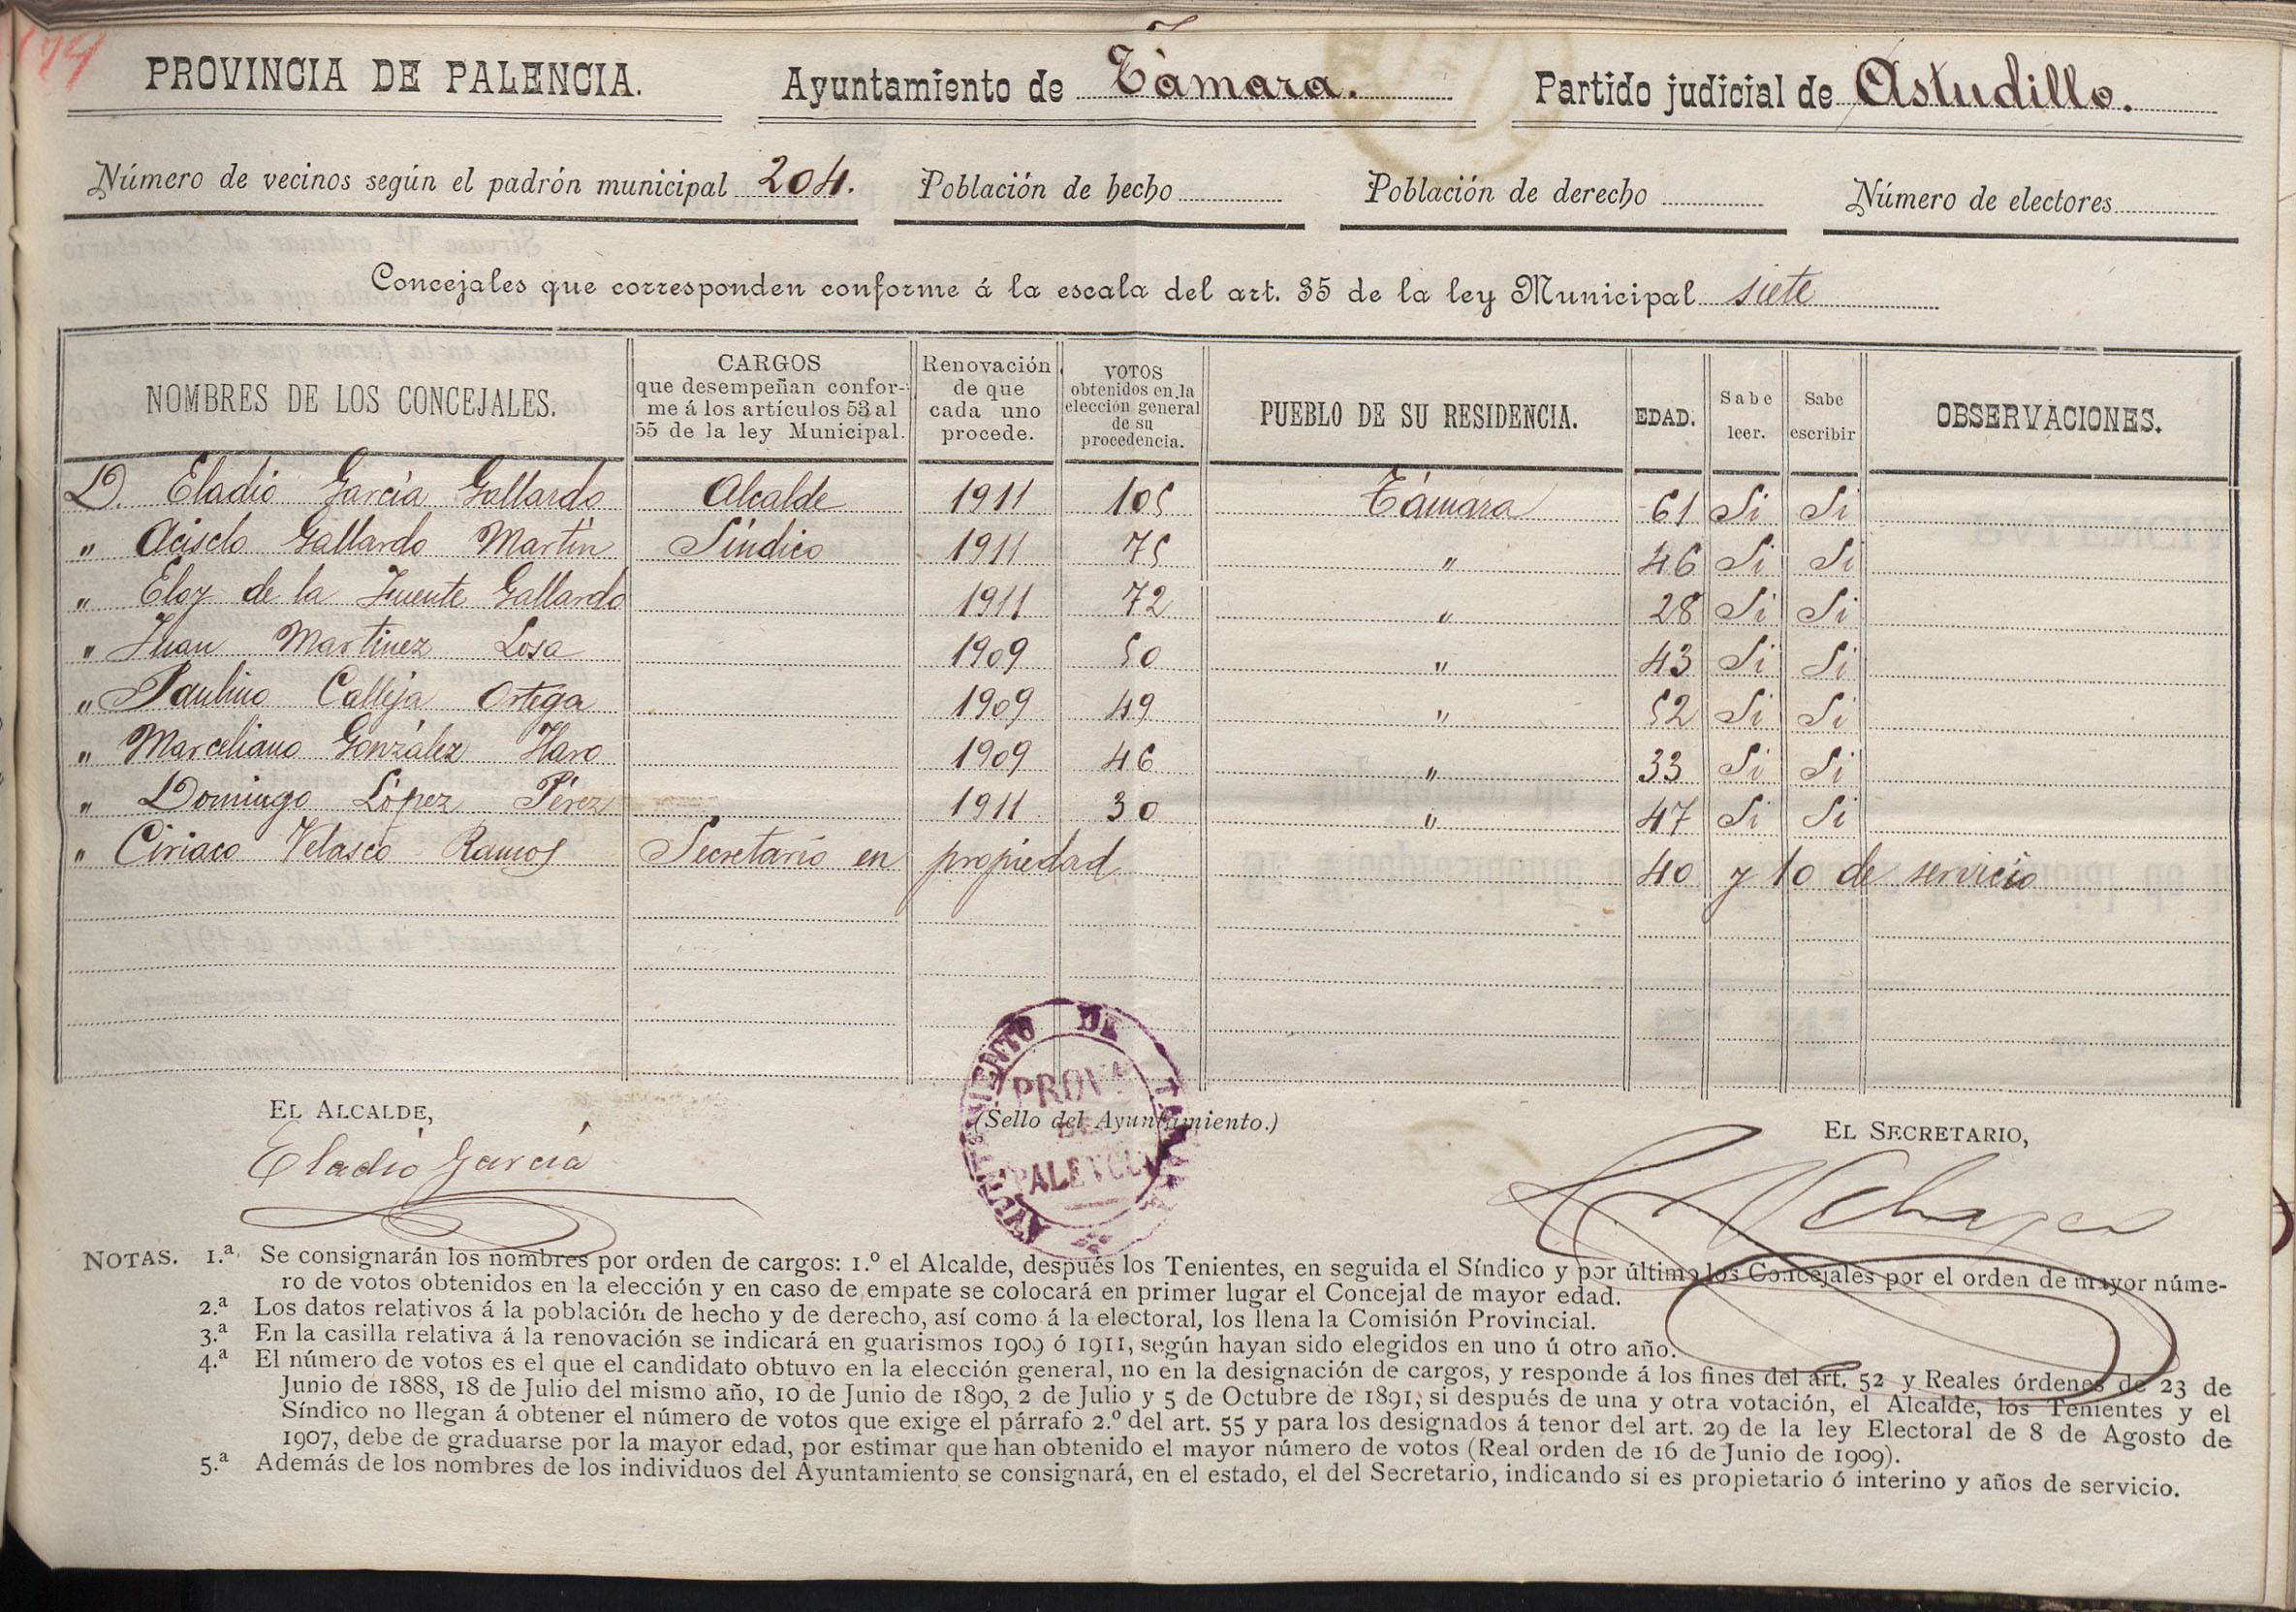 174
PROVINCIA DE PALENCIA. Ayuntamiento de Támara. Partido judicial de Astudillo.
Número de vecinos según el padrón municipal 204. Población de hecho Población de derecho Número de electores
Concejales que corresponden conforme á la escala del art. 35 de la ley Municipal siete
NOMBRES DE LOS CONCEJALES. CARGOS que desempeñan conforme á los artículos 53 al 55 de la ley Municipal. Renovación de que cada uno procede. VOTOS obtenidos en la elección general de su procedencia. PUEBLO DE SU RESIDENCIA. EDAD. Sabe leer. Sabe escribir OBSERVACIONES.
D. Eladio García Gallardo Alcalde 1911 105 Támara 61 Si Si
" Acisclo Gallardo Martín Síndico 1911 75 " 46 Si Si
" Eloy de la Fuente Gallardo 1911 72 " 28 Si Si
" Juan Martinez Losa 1909 50 " 43 Si Si
" Paulino Calleja Ortega 1909 49 " 52 Si Si
" Marceliano González Haro 1909 46 " 33 Si Si
" Domingo López Pérez 1911 30 " 47 Si Si
" Ciriaco Velasco Ramos Secretario en propiedad 40 y 10 de servicio
EL ALCALDE,
(Sello del Ayuntamiento.)
EL SECRETARIO,
Eladio García
AYUNTAMIENTO DE TAMARA
PROVª DE PALENCIA
NOTAS. 1.ª Se consignarán los nombres por orden de cargos: 1.º el Alcalde, después los Tenientes, en seguida el Síndico y por último los Concejales por el orden de mayor núme-
ro de votos obtenidos en la elección y en caso de empate se colocará en primer lugar el Concejal de mayor edad.
2.ª Los datos relativos á la población de hecho y de derecho, así como á la electoral, los llena la Comisión Provincial.
3.ª En la casilla relativa á la renovación se indicará en guarismos 1909 ó 1911, según hayan sido elegidos en uno ú otro año.
4.ª El número de votos es el que el candidato obtuvo en la elección general, no en la designación de cargos, y responde á los fines del art. 52 y Reales órdenes de 23 de
Junio de 1888, 18 de Julio del mismo año, 10 de Junio de 1890, 2 de Julio y 5 de Octubre de 1891; si después de una y otra votación, el Alcalde, los Tenientes y el
Síndico no llegan á obtener el número de votos que exige el párrafo 2.º del art. 55 y para los designados á tenor del art. 29 de la ley Electoral de 8 de Agosto de
1907, debe de graduarse por la mayor edad, por estimar que han obtenido el mayor número de votos (Real orden de 16 de Junio de 1909).
5.ª Además de los nombres de los individuos del Ayuntamiento se consignará, en el estado, el del Secretario, indicando si es propietario ó interino y años de servicio.